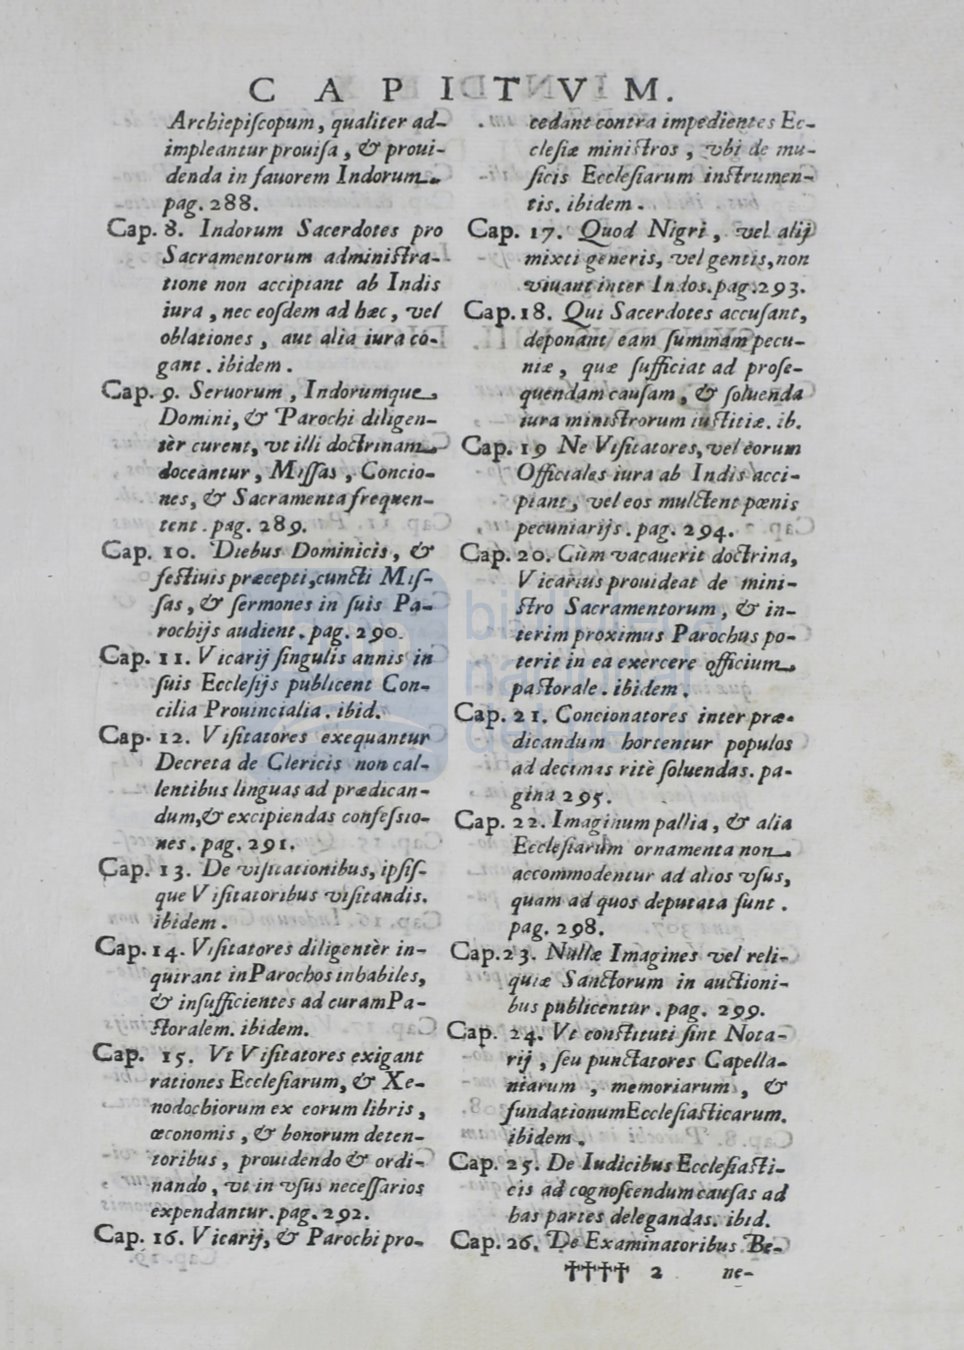 CAPITVM.
Archiepiſcopum, qualiter ad-
impleantur prouiſa, & proui-
denda in fauorem Indorum.
pag. 288.
Cap. 8. Indorum Sacerdotes pro
Sacramentorum adminiſtra-
tione non accipiant ab Indis
iura, nec eoſdem ad hæc, vel
oblationes, aut alia iura co-
gant. ibidem.
Cap. 9. Seruorum, Indorumque
Domini, & Parochi diligen-
tèr curent, vt illi doctrinam
doceantur, Miſſas, Concio-
nes, & Sacramenta frequen-
tent. pag. 289.
Cap. 10. Diebus Dominicis, &
feſtiuis præcepti, cuncti Miſ-
ſas, & ſermones in ſuis Pa-
rochijs audient. pag. 290.
Cap. 11. Vicarij ſingulis annis in
ſuis Eccleſijs publicent Con-
cilia Prouincialia. ibid.
Cap. 12. Viſitatores exequantur
Decreta de Clericis non cal-
lentibus linguas ad prædican-
dum, & excipiendas confeſsio-
nes. pag. 291.
Cap. 13. De viſitationibus, ipſiſ-
que Viſitatoribus viſitandis.
ibidem.
Cap. 14. Viſitatores diligentèr in-
quirant in Parochos inhabiles,
& inſufficientes ad curam Pa-
ſtoralem. ibidem.
Cap. 15. Vt Viſitatores exigant
rationes Eccleſiarum, & Xe-
nodochiorum ex eorum libris,
œconomis, & bonorum deten-
toribus, prouidendo & ordi-
nando, vt in vſus neceſſarios
expendantur. pag. 292.
Cap. 16. Vicarij, & Parochi pro-
cedant contra impedientes Ec-
cleſiæ miniſtros, vbi de mu-
ſicis Eccleſiarum inſtrumen-
tis. ibidem.
Cap. 17. Quod Nigri, vel alij
mixti generis, vel gentis, non
viuant inter Indos. pag. 293.
Cap. 18. Qui Sacerdotes accuſant,
deponant eam ſummam pecu-
niæ, quæ ſufficiat ad proſe-
quendam cauſam, & ſoluenda
iura miniſtrorum iuſtitiæ. ib.
Cap. 19 Ne Viſitatores, vel eorum
Officiales iura ab Indis acci-
piant, vel eos mulctent pœnis
pecuniarijs. pag. 294.
Cap. 20. Cùm vacauerit doctrina,
Vicarius prouideat de mini-
ſtro Sacramentorum, & in-
terim proximus Parochus po-
terit in ea exercere officium
paſtorale. ibidem.
Cap. 21. Concionatores inter præ-
dicandum hortentur populos
ad decimas ritè ſoluendas. pa-
gina 295.
Cap. 22. Imaginum pallia, & alia
Eccleſiarum ornamenta non
accommodentur ad alios vſus,
quam ad quos deputata ſunt.
pag. 298.
Cap. 23. Nullæ Imagines vel reli-
quiæ Sanctorum in auctioni-
bus publicentur. pag. 299.
Cap. 24. Vt conſtituti ſint Nota-
rij, ſeu punctatores Capella-
niarum, memoriarum, &
fundationum Eccleſiaſticarum.
ibidem.
Cap. 25. De Iudicibus Eccleſiaſti-
cis ad cognoſcendum cauſas ad
has partes delegandas. ibid.
Cap. 26. De Examinatoribus Be-
†††† 2 ne-
biblioteca
nacional